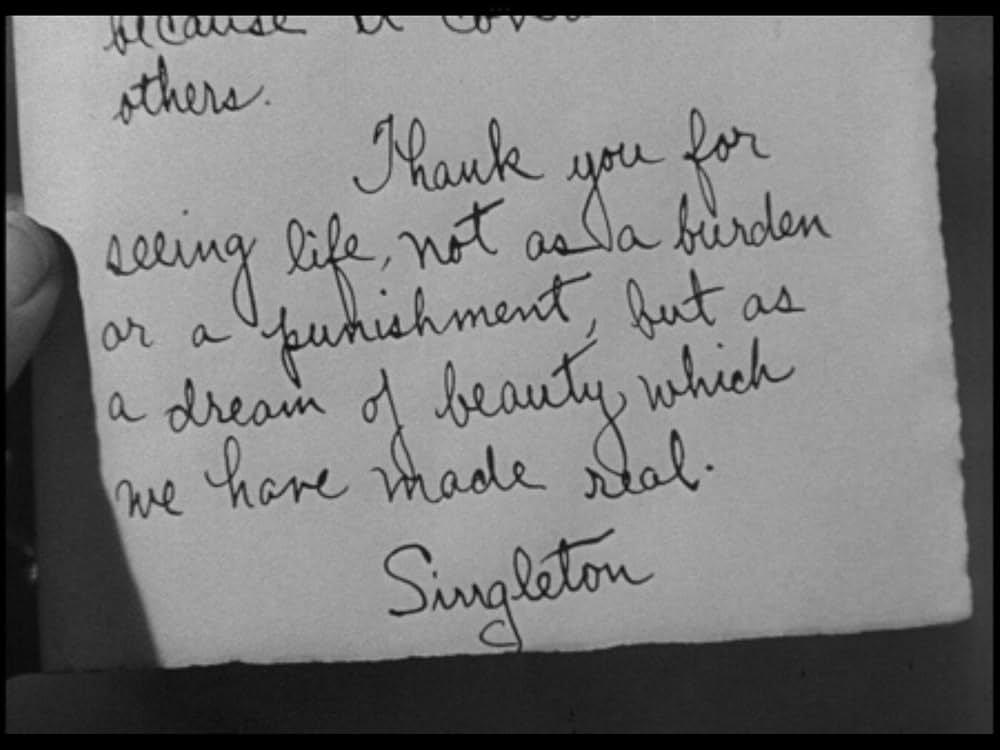 because it
others.
Thank you for
seeing life, not as a burden
or a punishment, but as
a dream of beauty, which
we have made real.
Singleton